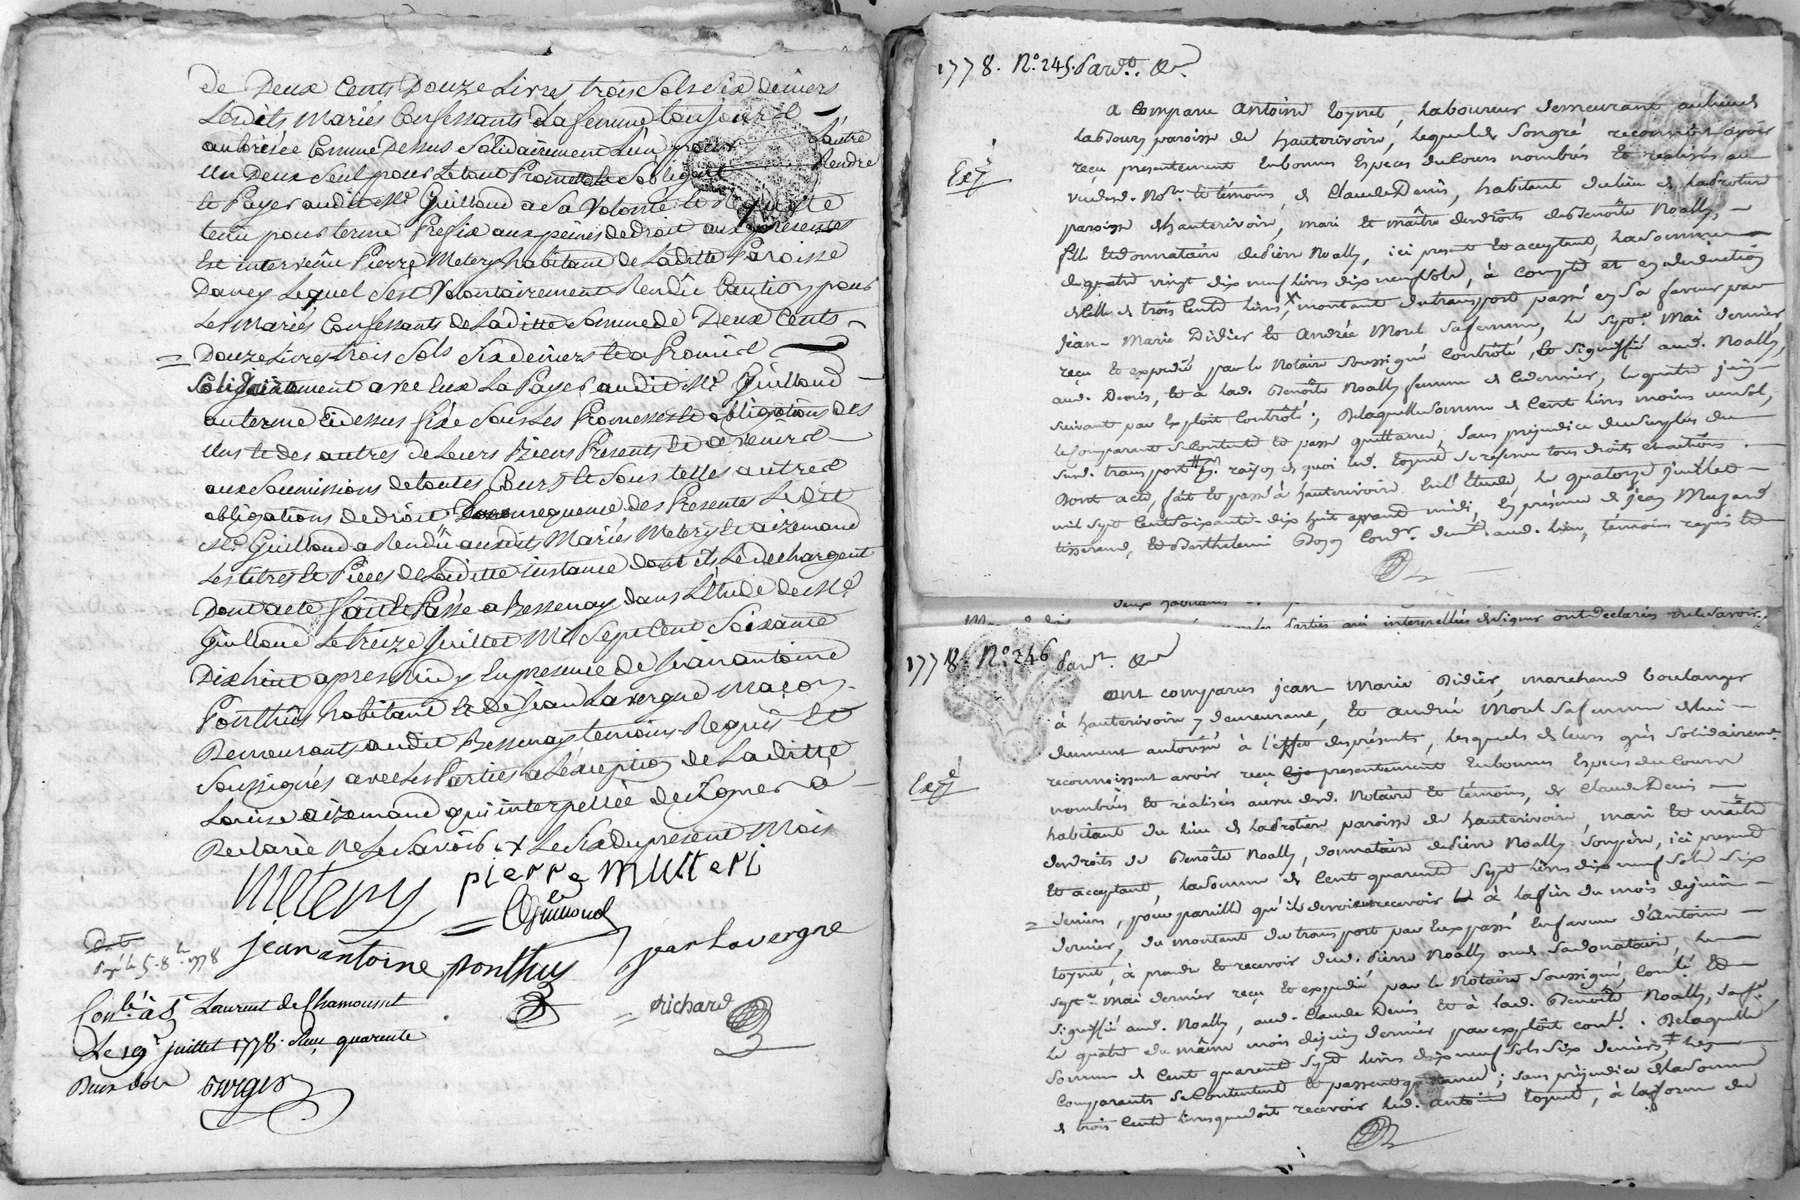 de Deux Cents Douze Livres trois Sols Six deniers
Lesdits Mariés Confessants & la femme toujours
authorisée Comme Dessus Solidairement L'un pour L'autre
Un Deux Seul pour Le tout Promettent Sobligent Rendre
et Payer audit Me Guilloud a Sa Volonté et Requête
tenu pour terme Préfix aux peines de droit aux présentes
Est intervenû Pierre Metery habitant de Laditte Paroisse
Davey Lequel S'est Volontairement Rendû Caution pour
Les Mariés Confessants de Laditte Somme de Deux Cents
Douze Livres trois Sols Six deniers et a Promis
Solidairement avec Eux La Payer audit Me Guilloud
au terme Cidessus fixé Sous Les Promesses et obligations des
Uns et des autres de Leurs Biens Présents et a venir
aux Soumissions de toutes Cours et Sous telles autres
obligations de droit En consequence des Presentes Ledit
Me Guilloud a Rendû auxdits Mariés Metery et aizemand
Les titres et Pièces de Laditte instance dont ils Le dechargent
Dont acte fait et Passé a Bessenay dans L'Etude de Me
Guilloud Le treize Juillet Mil Sept Cent Soixante
Dix huit apres midy En presence de Jean antoine
Ponthus habitant et de Jean Lavergne maçon
Demeurants audit Bessenay temoins Requis Et
Soussignés avec Les Parties a L'exception de Laditte
Louise aizemand qui interpellée de Signer a
Declarée ne Le Savoir x Le Six du present Mois
Metery pierre Mutteri
Guilloud
jean antoine ponthus jean Lavergne
Richard
Conlé à St Laurent de Chamousset
Le 19e juillet 1778. Reçu quarente
Deux sols
1778. N.° 245. Pardt. &c.
A Comparu Antoine Coynet, Laboureur demeurant au lieu de
Labdoury paroisse de hauterivoire, lequel de Son gré reconnoit avoir
reçu presentement En bonnes Especes du Cours nombrés Et realisés au
Exp.é
vû du d. Nore. Et témoins, de Claude Denis, habitant du lieu de Labrotière
paroisse d'hauterivoire, mari Et maître des droits de Benoîte Noally,
fille Et donnataire de Pierre Noally, ici present Et acceptant, la Somme
de quatre vingt dix neuf livres dix neuf Sols, à compte et en deduction
de celle de trois Cents livres, x montant du transport passé en Sa faveur par
Jean-Marie Didier Et Andrée Moul Sa femme, le Sept.e Mai dernier
reçu Et expedié par le Notaire Soussigné Contrôlé, Et Signifié aud. Noally,
aud. Denis, Et à lad. Benoîte Noally femme de ce dernier, le quatre juin
Suivant par Exploit Contrôlé; De laquelle Somme de Cent livres moins un Sol,
le Comparant Se Contente Et passe quittance, Sans prejudice du Surplus du
Sud. transport, raison de quoi led. Coynet Se reserve tous droits Et actions.
Dont acte, fait Et passé à hauterivoire En l'Etude, le quatorze juillet
mil Sept Cent Soixante-dix huit apres midi, En présence de Jean Mugand
tisserand, Et Barthelemi Boyon Cord.r demts aud. lieu, témoins requis Et
parties qui interpellées de Signer ont declarés ne le Savoir.
1778. N.° 246 Pardt. &c
Ont comparus Jean-Marie Didier, marchand boulanger
à hauterivoire y demeurant, Et Andrée Moul Sa femme de lui
duement autorisée à l'effet des présentes, lesquels de leurs grés Solidairement
reconnoissent avoir reçu presentement En bonnes Especes du Cours
Exp.é
nombrés Et réalisés au vu du d. Notaire Et témoins, de Claude Denis
habitant du lieu de Labrotière paroisse de hauterivoire, mari Et maître
des droits de Benoîte Noally, donnataire de Pierre Noally Son père, ici present
Et acceptant, la Somme de Cent quarente Sept livres dix neuf Sols Six
deniers, pour pareille qu'ils devoient recevoir à la fin du mois de juin
dernier, du montant du transport par Eux passé En faveur d'Antoine
Coynet, à prendre Et recevoir dud. Pierre Noally ou de Sa donnataire, le
Sept.e Mai dernier reçu Et expedié par le Notaire Soussigné, Conlé Et
Signifié aud. Noally, aud. Claude Denis Et à lad. Benoîte Noally, Sa fe
le quatre du même mois de juin dernier par exploit contlé. De laquelle
Somme de Cent quarente Sept livres dix neuf Sols Six deniers, les
Comparants Se Contentent Et passent quittance; Sans préjudice de la Somme
de trois Cents livres que doit recevoir led. Antoine Coynet, à la forme du